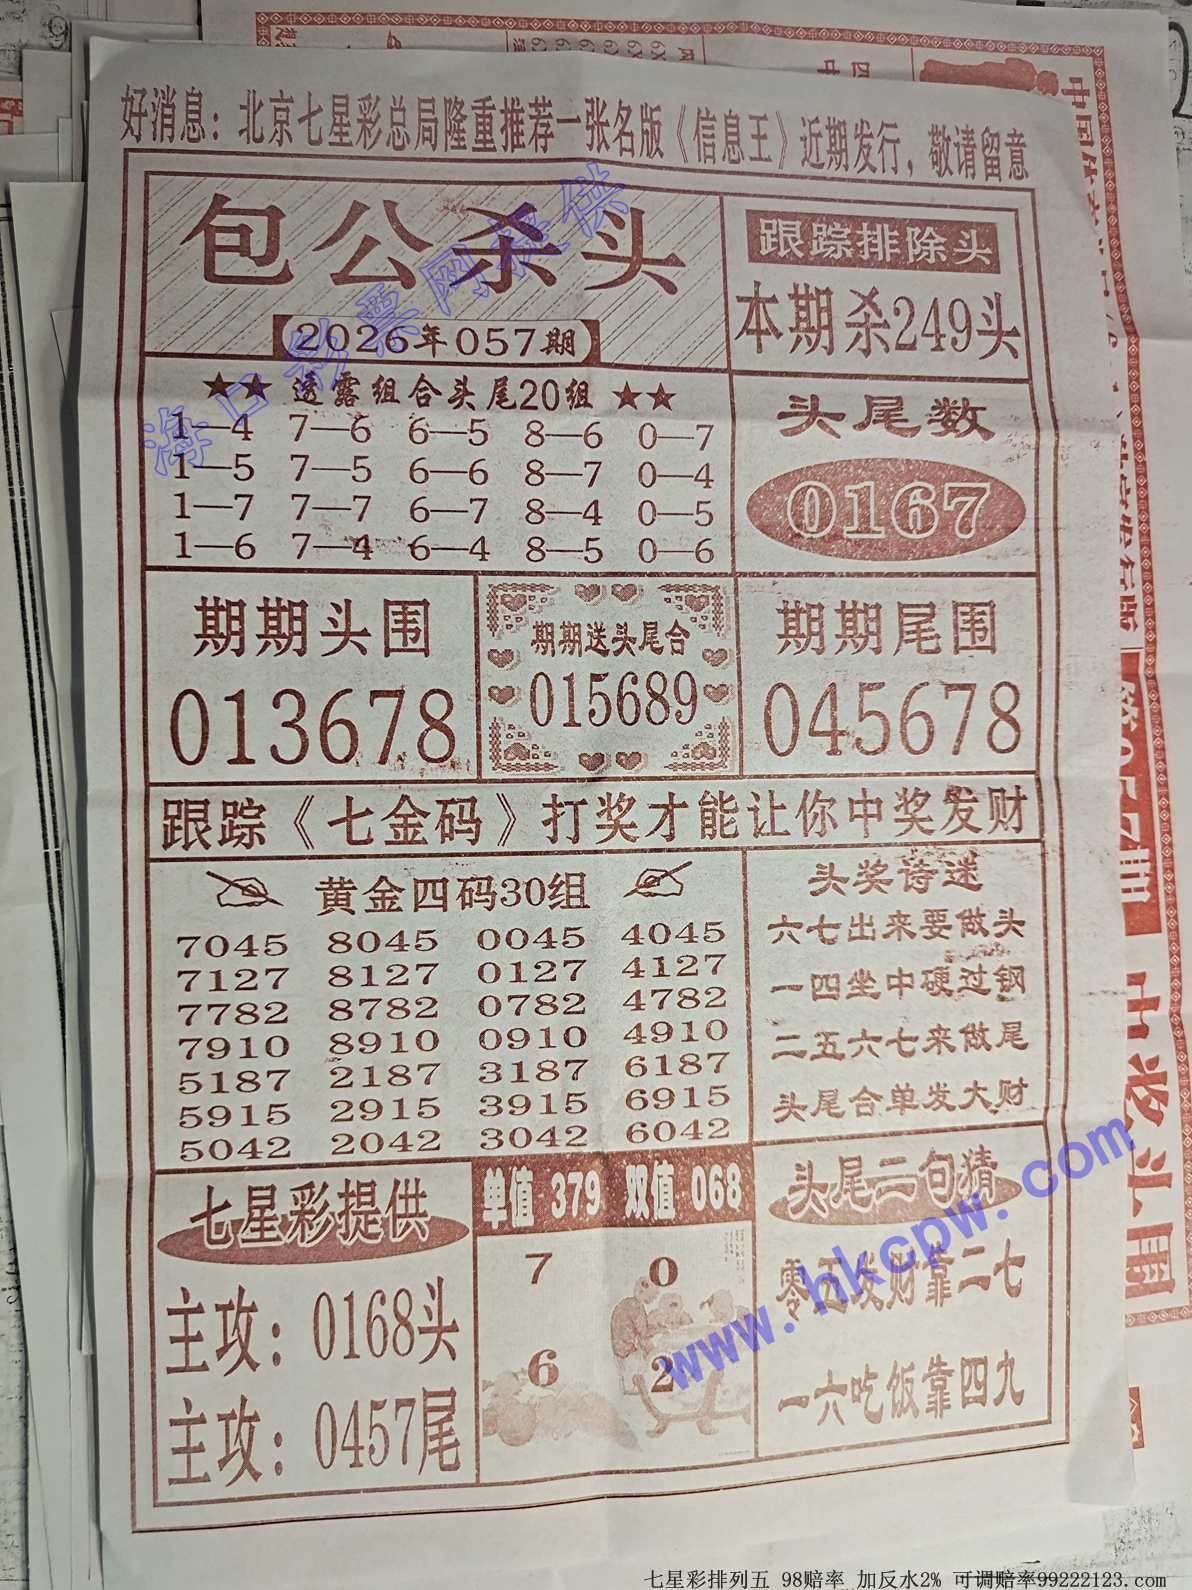 好消息：北京七星彩总局隆重推荐一张名版《信息王》近期发行，敬请留意
包公杀头
2026年057期
跟踪排除头
本期杀249头
★★ 透露组合头尾20组 ★★
1—4 7—6 6—5 8—6 0—7
1—5 7—5 6—6 8—7 0—4
1—7 7—7 6—7 8—4 0—5
1—6 7—4 6—4 8—5 0—6
头尾数
0167
期期头围
013678
期期送头尾合
015689
期期尾围
045678
跟踪《七金码》打奖才能让你中奖发财
黄金四码30组
7045 8045 0045 4045
7127 8127 0127 4127
7782 8782 0782 4782
7910 8910 0910 4910
5187 2187 3187 6187
5915 2915 3915 6915
5042 2042 3042 6042
头奖诗迷
六七出来要做头
一四坐中硬过钢
二五六七来做尾
头尾合单发大财
七星彩提供
主攻：0168头
主攻：0457尾
单值 379 双值 068
7 0
6 2
头尾二句猜
零五发财靠二七
一六吃饭靠四九
海口彩票网提供
www.hkcpw.com
七星彩排列五 98赔率 加反水2% 可调赔率99222123.com